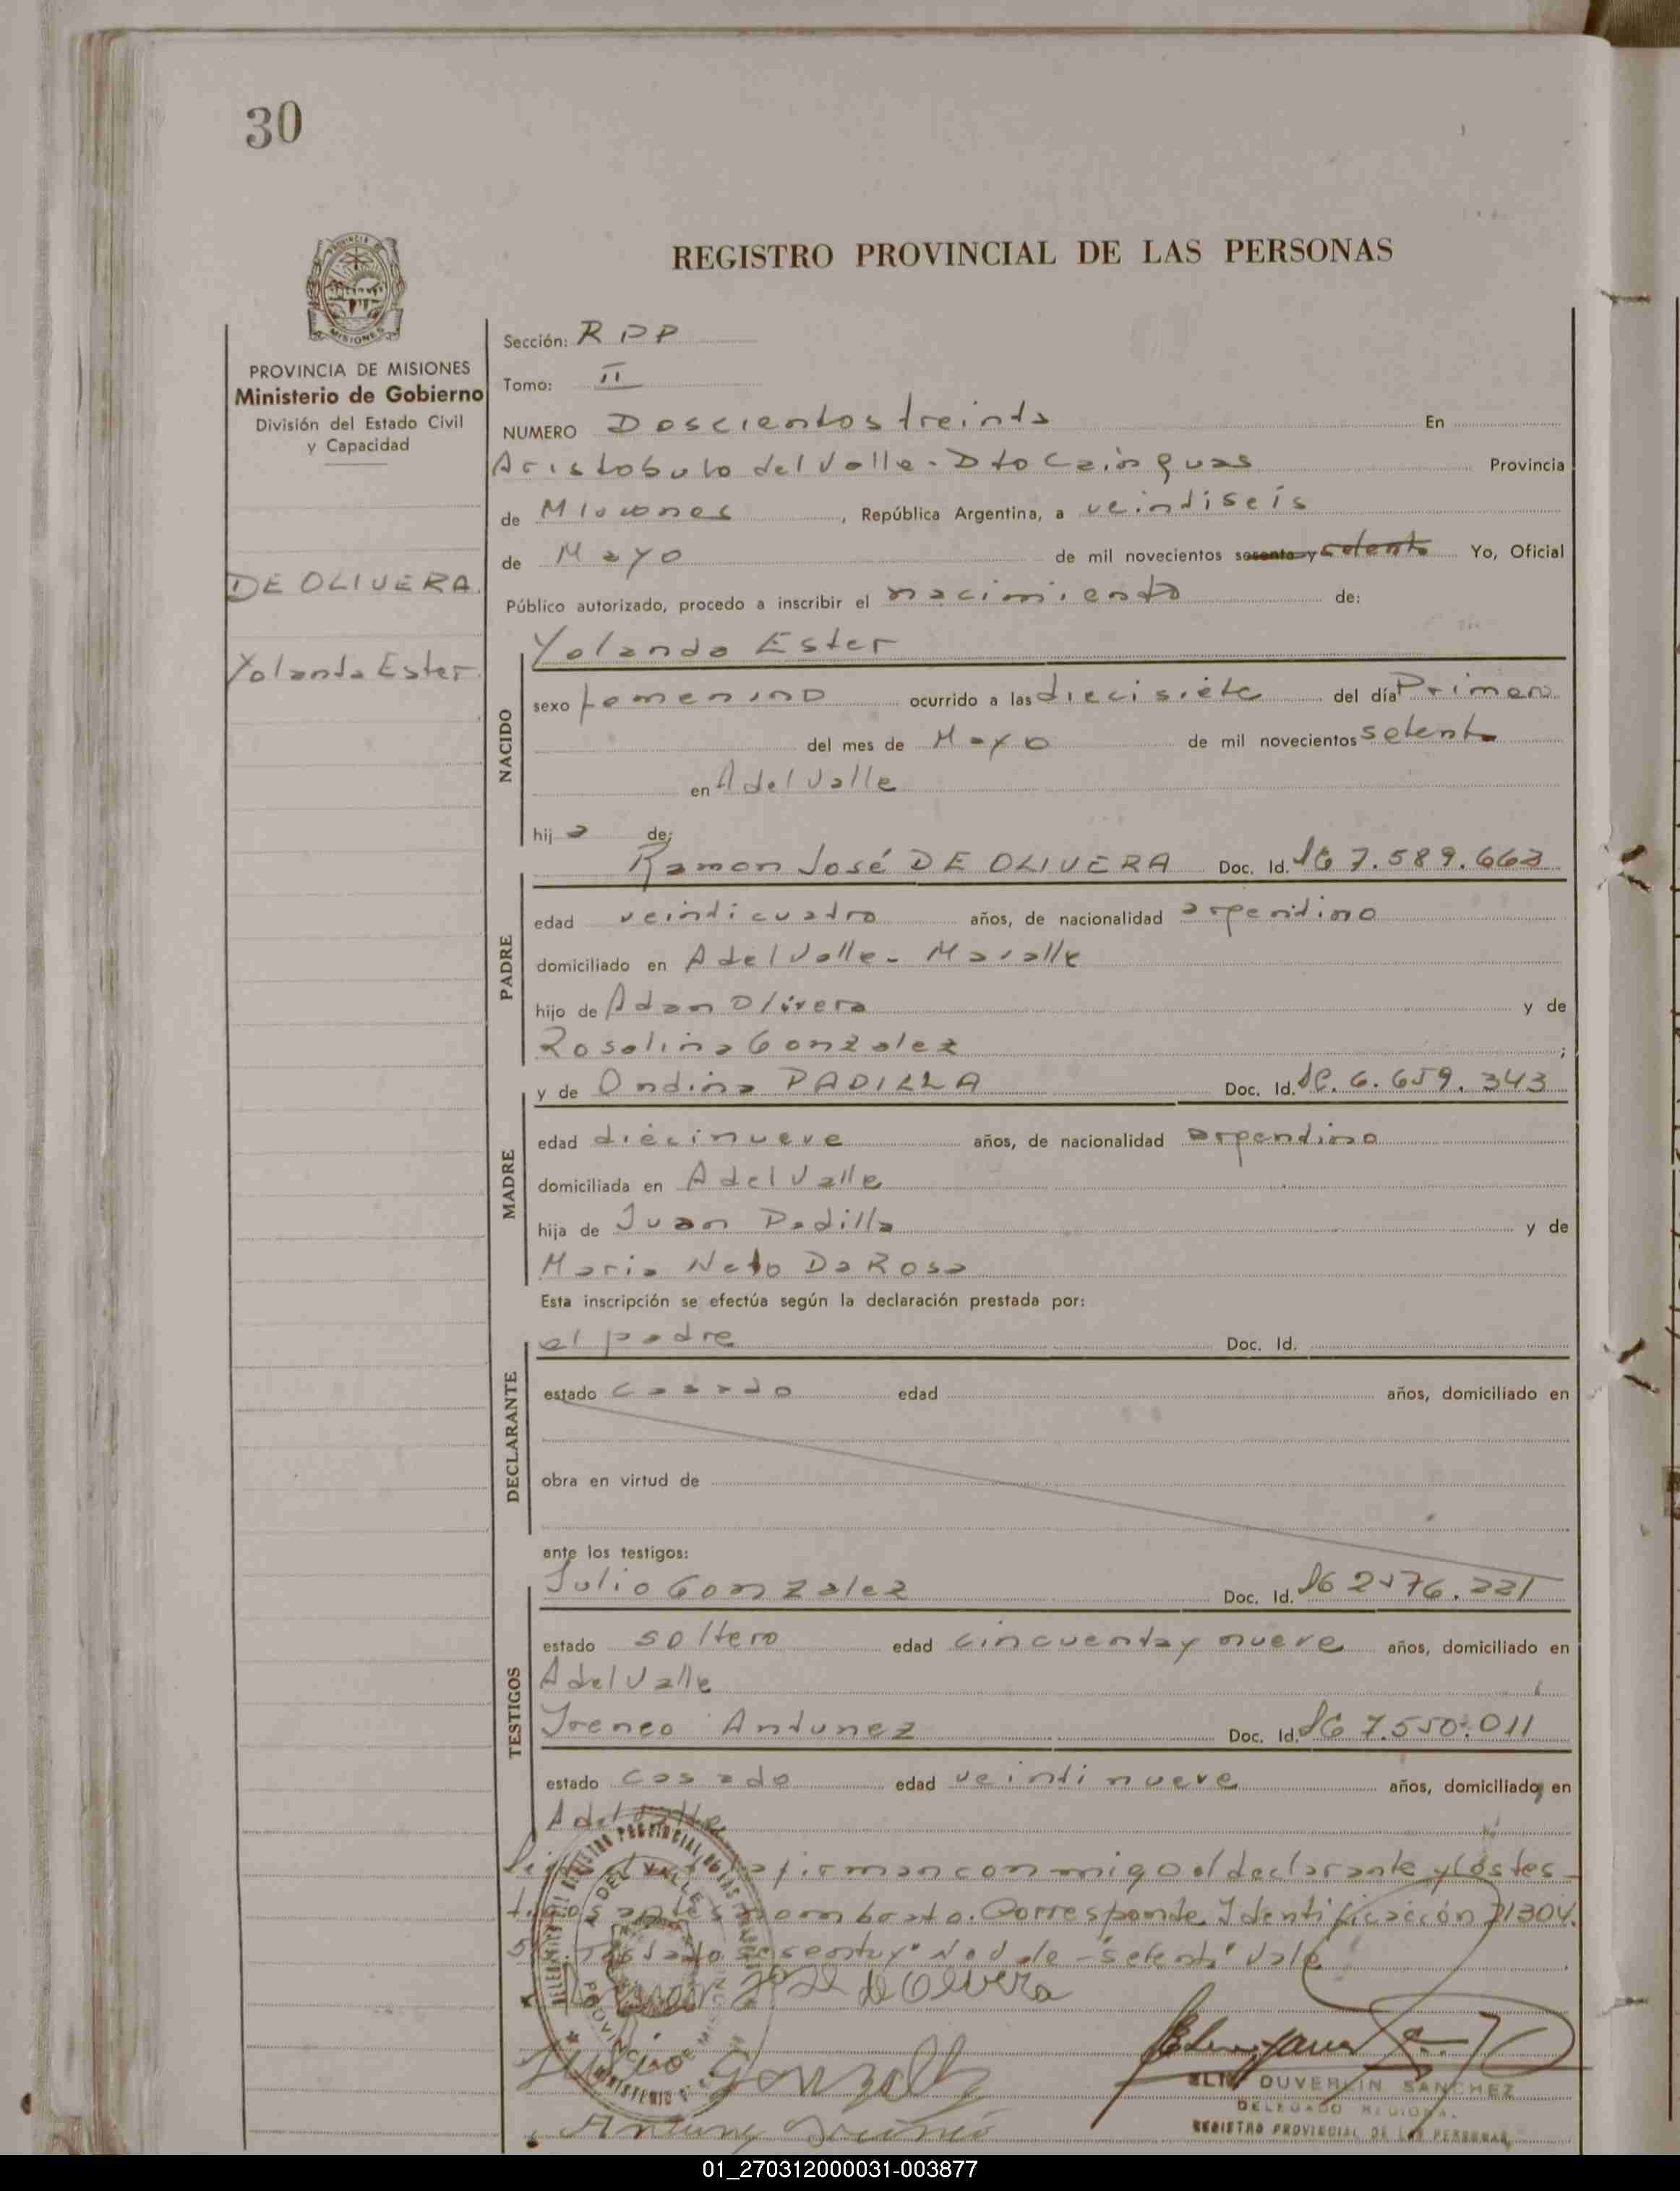 30
REGISTRO PROVINCIAL DE LAS PERSONAS
PROVINCIA DE MISIONES
Ministerio de Gobierno
División del Estado Civil
y Capacidad
DE OLIVERA
Yolanda Ester
Sección: R P P
Tomo: II
NUMERO Doscientos treinta En
Aristobulo del Valle - Dto Cainguas Provincia
de Misiones, República Argentina, a veintiseis
de Mayo de mil novecientos sesenta y setenta Yo, Oficial
Público autorizado, procedo a inscribir el nacimiento de:
Yolanda Ester
NACIDO
sexo femenino ocurrido a las diecisiete del día Primero
del mes de Mayo de mil novecientos setenta
en A del Valle
hij a de:
Ramon José DE OLIVERA Doc. Id. 7.589.662
PADRE
edad veinticuatro años, de nacionalidad argentino
domiciliado en A del Valle -
hijo de Adan Olivera y de
Rosalina Gonzalez ;
y de Ondina PADILLA Doc. Id. 6.659.343
MADRE
edad diecinueve años, de nacionalidad argentina
domiciliada en A del Valle
hija de Juan Padilla y de
Maria Neto Da Rosa
Esta inscripción se efectúa según la declaración prestada por:
el padre Doc. Id.
DECLARANTE
estado casado edad años, domiciliado en
obra en virtud de
ante los testigos:
Julio Gonzalez Doc. Id.
TESTIGOS
estado soltero edad cincuenta y nueve años, domiciliado en
A del Valle
Ireneo Antunez Doc. Id. 7.550.011
estado casado edad veintinueve años, domiciliado en
A del Valle
firman conmigo el declarante y los tes-
tigos antes nombrado. Corresponde Identificación
Testado sesenta y "No vale - "setenta" Vale
Ramon José de Olivera
Julio Gonzalez
DUVERLIN SANCHEZ
DELEGADO REGIONAL
REGISTRO PROVINCIAL DE LAS PERSONAS
01_270312000031-003877